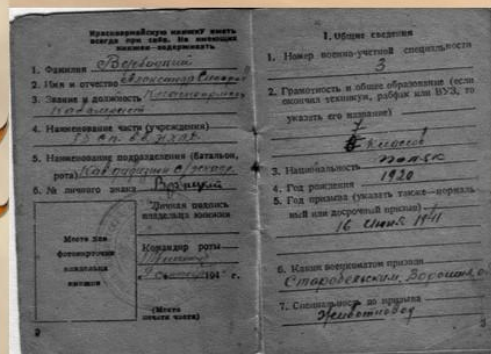 Красноармейскую книжку иметь
всегда при себе. Не имеющих
книжек - задерживать.
1. Фамилия Вербицкий
2. Имя и отчество Александр
3. Звание и должность Красноармеец
4. Наименование части (учреждения)
5. Наименование подразделения (батальон,
рота)
6. № личного знака
Личная подпись
владельца книжки
Место для
фотокарточки
владельца
книжки
Командир роты
194 г.
(Место
печати части)
2
I. Общие сведения
1. Номер военно-учетной специальности
3
2. Грамотность и общее образование (если
окончил техникум, рабфак или ВУЗ, то
указать его название)
7
классов
3. Национальность поляк
4. Год рождения 1920
5. Год призыва (указать также—нормаль-
ный или досрочный призыв)
16 июня 1941
6. Каким военкоматом призван
Старобельским, Ворошил
7. Специальность до призыва
животновод
3